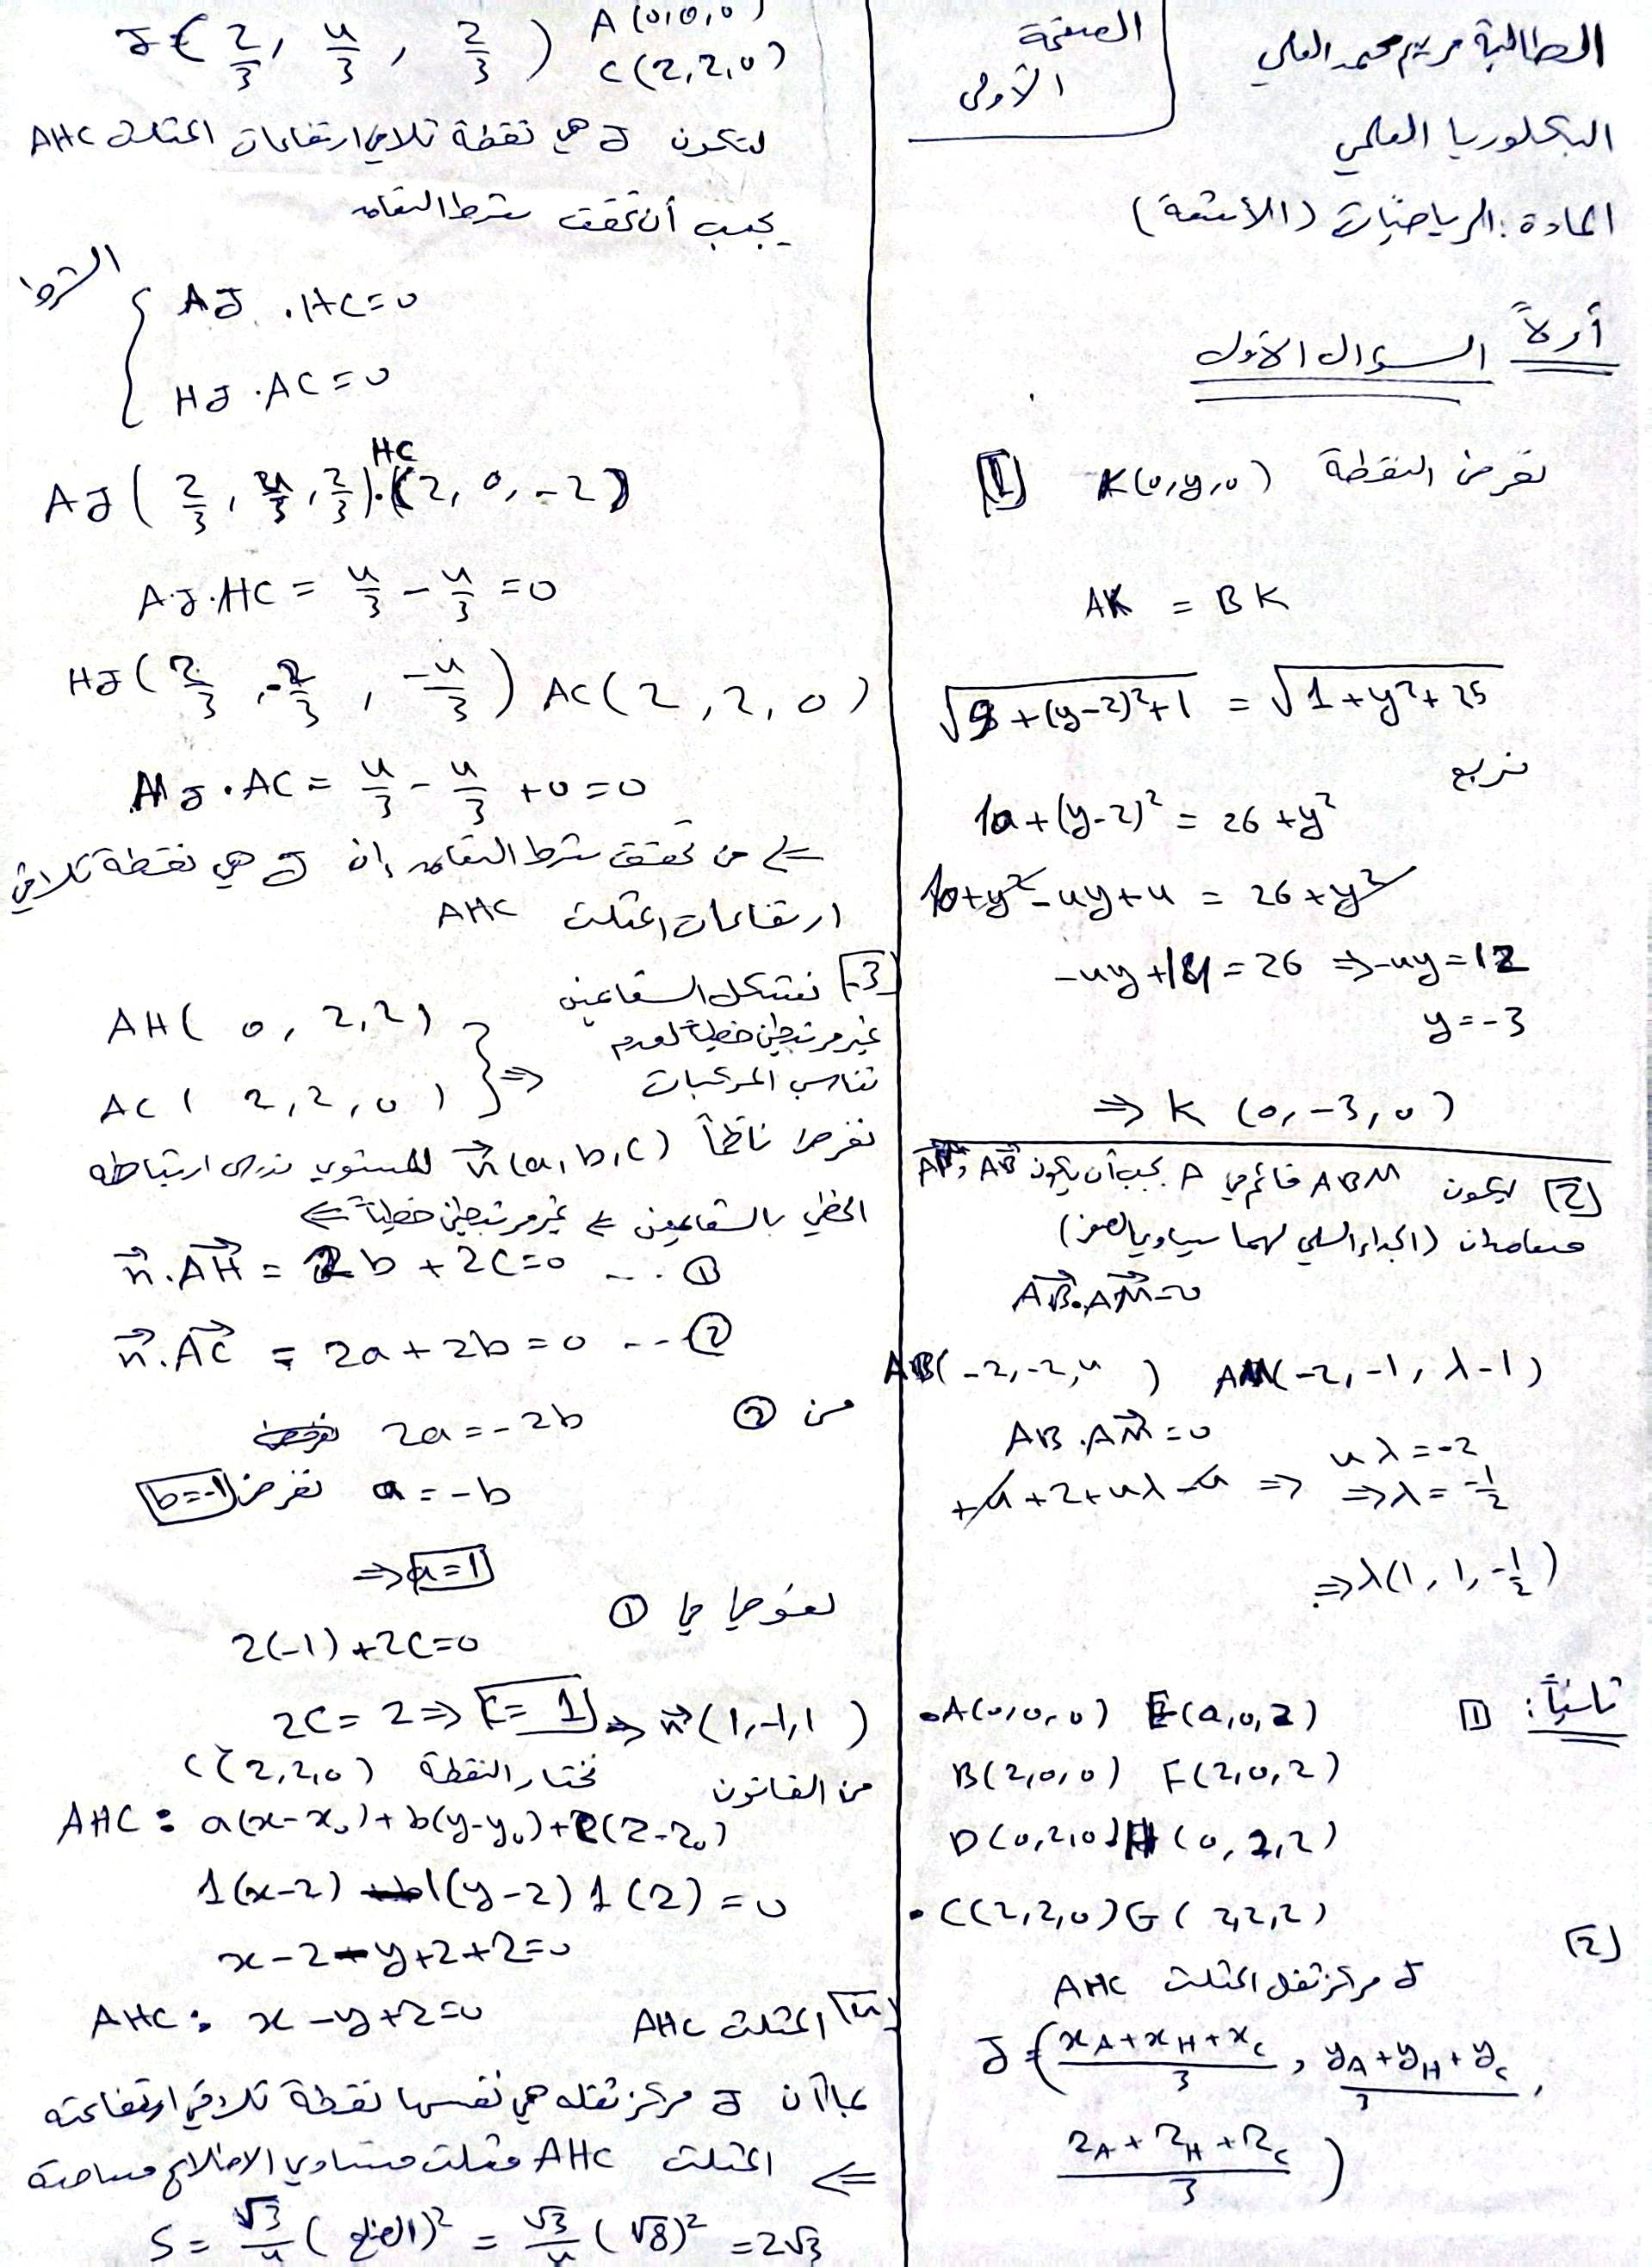 الطالبة مريم محمد العلي
الصفحة
الأولى
البكلوريا العلمي
المادة: الرياضيات (الأشعة)
أولاً السؤال الأول
1 نفرض النقطة K(0,y,0)
AK = BK
√9+(y-2)²+1 = √1+y²+25
نربع
10+(y-2)² = 26+y²
10+y²-4y+4 = 26+y²
-4y+14=26 ⇒ -4y=12
y=-3
⇒ K (0,-3,0)
2 ليكون ABM قائم في A يجب أن يكون AM, AB
متعامدان (الجداء السلمي لهما يساوي الصفر)
AB.AM=0
AB(-2,-2,4) AM(-2,-1,λ-1)
AB.AM=0
+4+2+4λ-4 ⇒ 4λ=-2
⇒ λ=-1/2
⇒ λ(1,1,-1/2)
ثانياً: 1 • A(0,0,0) E(0,0,2)
B(2,0,0) F(2,0,2)
D(0,2,0) H(0,2,2)
• C(2,2,0) G(2,2,2)
2
J مركز ثقل المثلث AHC
J = (xA+xH+xC/3, yA+yH+yC/3,
zA+zH+zC/3)
J=(2/3, 4/3, 2/3) A(0,0,0)
C(2,2,0)
لتكون J هي نقطة تلاقي ارتفاعات المثلث AHC
يجب أن تحقق شرط التعامد
الشرط
AJ.HC=0
HJ.AC=0
AJ(2/3, 4/3, 2/3).HC(2,0,-2)
AJ.HC = 4/3 - 4/3 = 0
HJ(2/3, -2/3, -4/3) AC(2,2,0)
HJ.AC = 4/3 - 4/3 + 0 = 0
⇐ من تحقق شرط التعامد إن J هي نقطة تلاقي
ارتفاعات المثلث AHC
3- نشكل الشعاعين
AH(0,2,2)
AC(2,2,0) ⇒ غير مرتبطين خطياً لعدم
تناسب المركبات
نفرض ناظماً n(a,b,c) للمستوي ندرس ارتباطه
الخطي بالشعاعين ⇐ غير مرتبطين خطياً ⇐
n.AH = 2b+2c=0 ... ①
n.AC = 2a+2b=0 ... ②
من ② 2a=-2b
a=-b نفرض b=-1
⇒ a=1
نعوض في ①
2(-1)+2c=0
2c=2 ⇒ c=1 ⇒ n(1,-1,1)
من القانون نختار النقطة C(2,2,0)
AHC: a(x-x₀)+b(y-y₀)+c(z-z₀)
1(x-2) -1(y-2) 1(z)=0
x-2-y+2+z=0
AHC: x-y+z=0
4 المثلث AHC
بما أن J مركز ثقله هي نفسها نقطة تلاقي ارتفاعته
⇐ المثلث AHC مثلث متساوي الاضلاع مساحته
S = √3/4 (الضلع)² = √3/4 (√8)² = 2√3